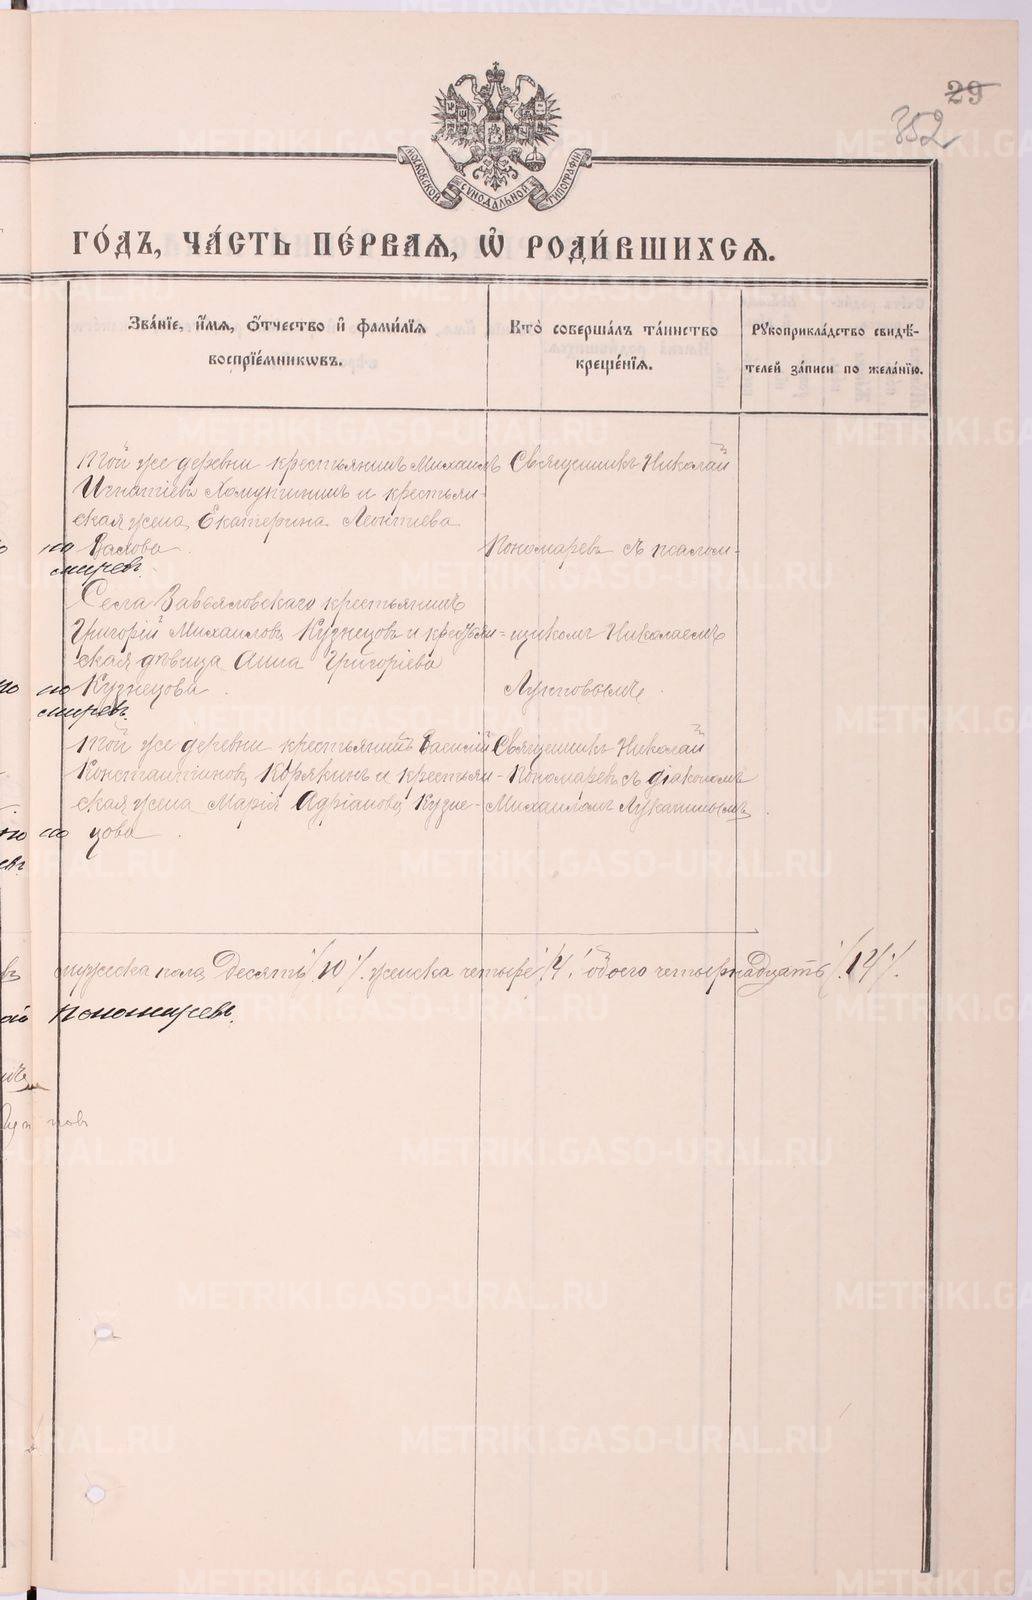 29
352
МОСКОВСКОЙ СѴНОДАЛЬНОЙ ТИПОГРАФІИ
ГО́ДЪ, ЧА́СТЬ ПЕ́РВАѦ, Ѽ РОДИ́ВШИХСѦ.
Зва́нїе, и҆́мѧ, ѻ҆́тчество и҆ фами́лїѧ
воспрїе́мникѡвъ.
Кто̀ соверша́лъ та́инство
креще́нїѧ.
Рꙋкоприкла́дство свидѣ́-
телей за́писи по жела́нїю.
Той же деревни крестьянинъ Михаилъ
Игнатіевъ Хомутининъ и крестьян-
ская жена Екатерина Леонтиева
Валова
Священникъ Николай
Пономаревъ съ псалом-
Села Завьяловскаго крестьянинъ
Григорій Михаиловъ Кузнецовъ и крестьян-
ская дѣвица Анна Григоріева
по Кузнецова
щикомъ Николаемъ
Луппов​ымъ
Той же деревни крестьянинъ Василій
Константиновъ Корякинъ и крестьян-
ская жена Марія Адріанова Кузне-
по цова
Священникъ Николай
Пономаревъ съ діакономъ
Михаиломъ Лукан​инымъ
мужеска пола десять /10/. женска четыре /4/ обоего четырнадцать /14/.
Пономаревъ.